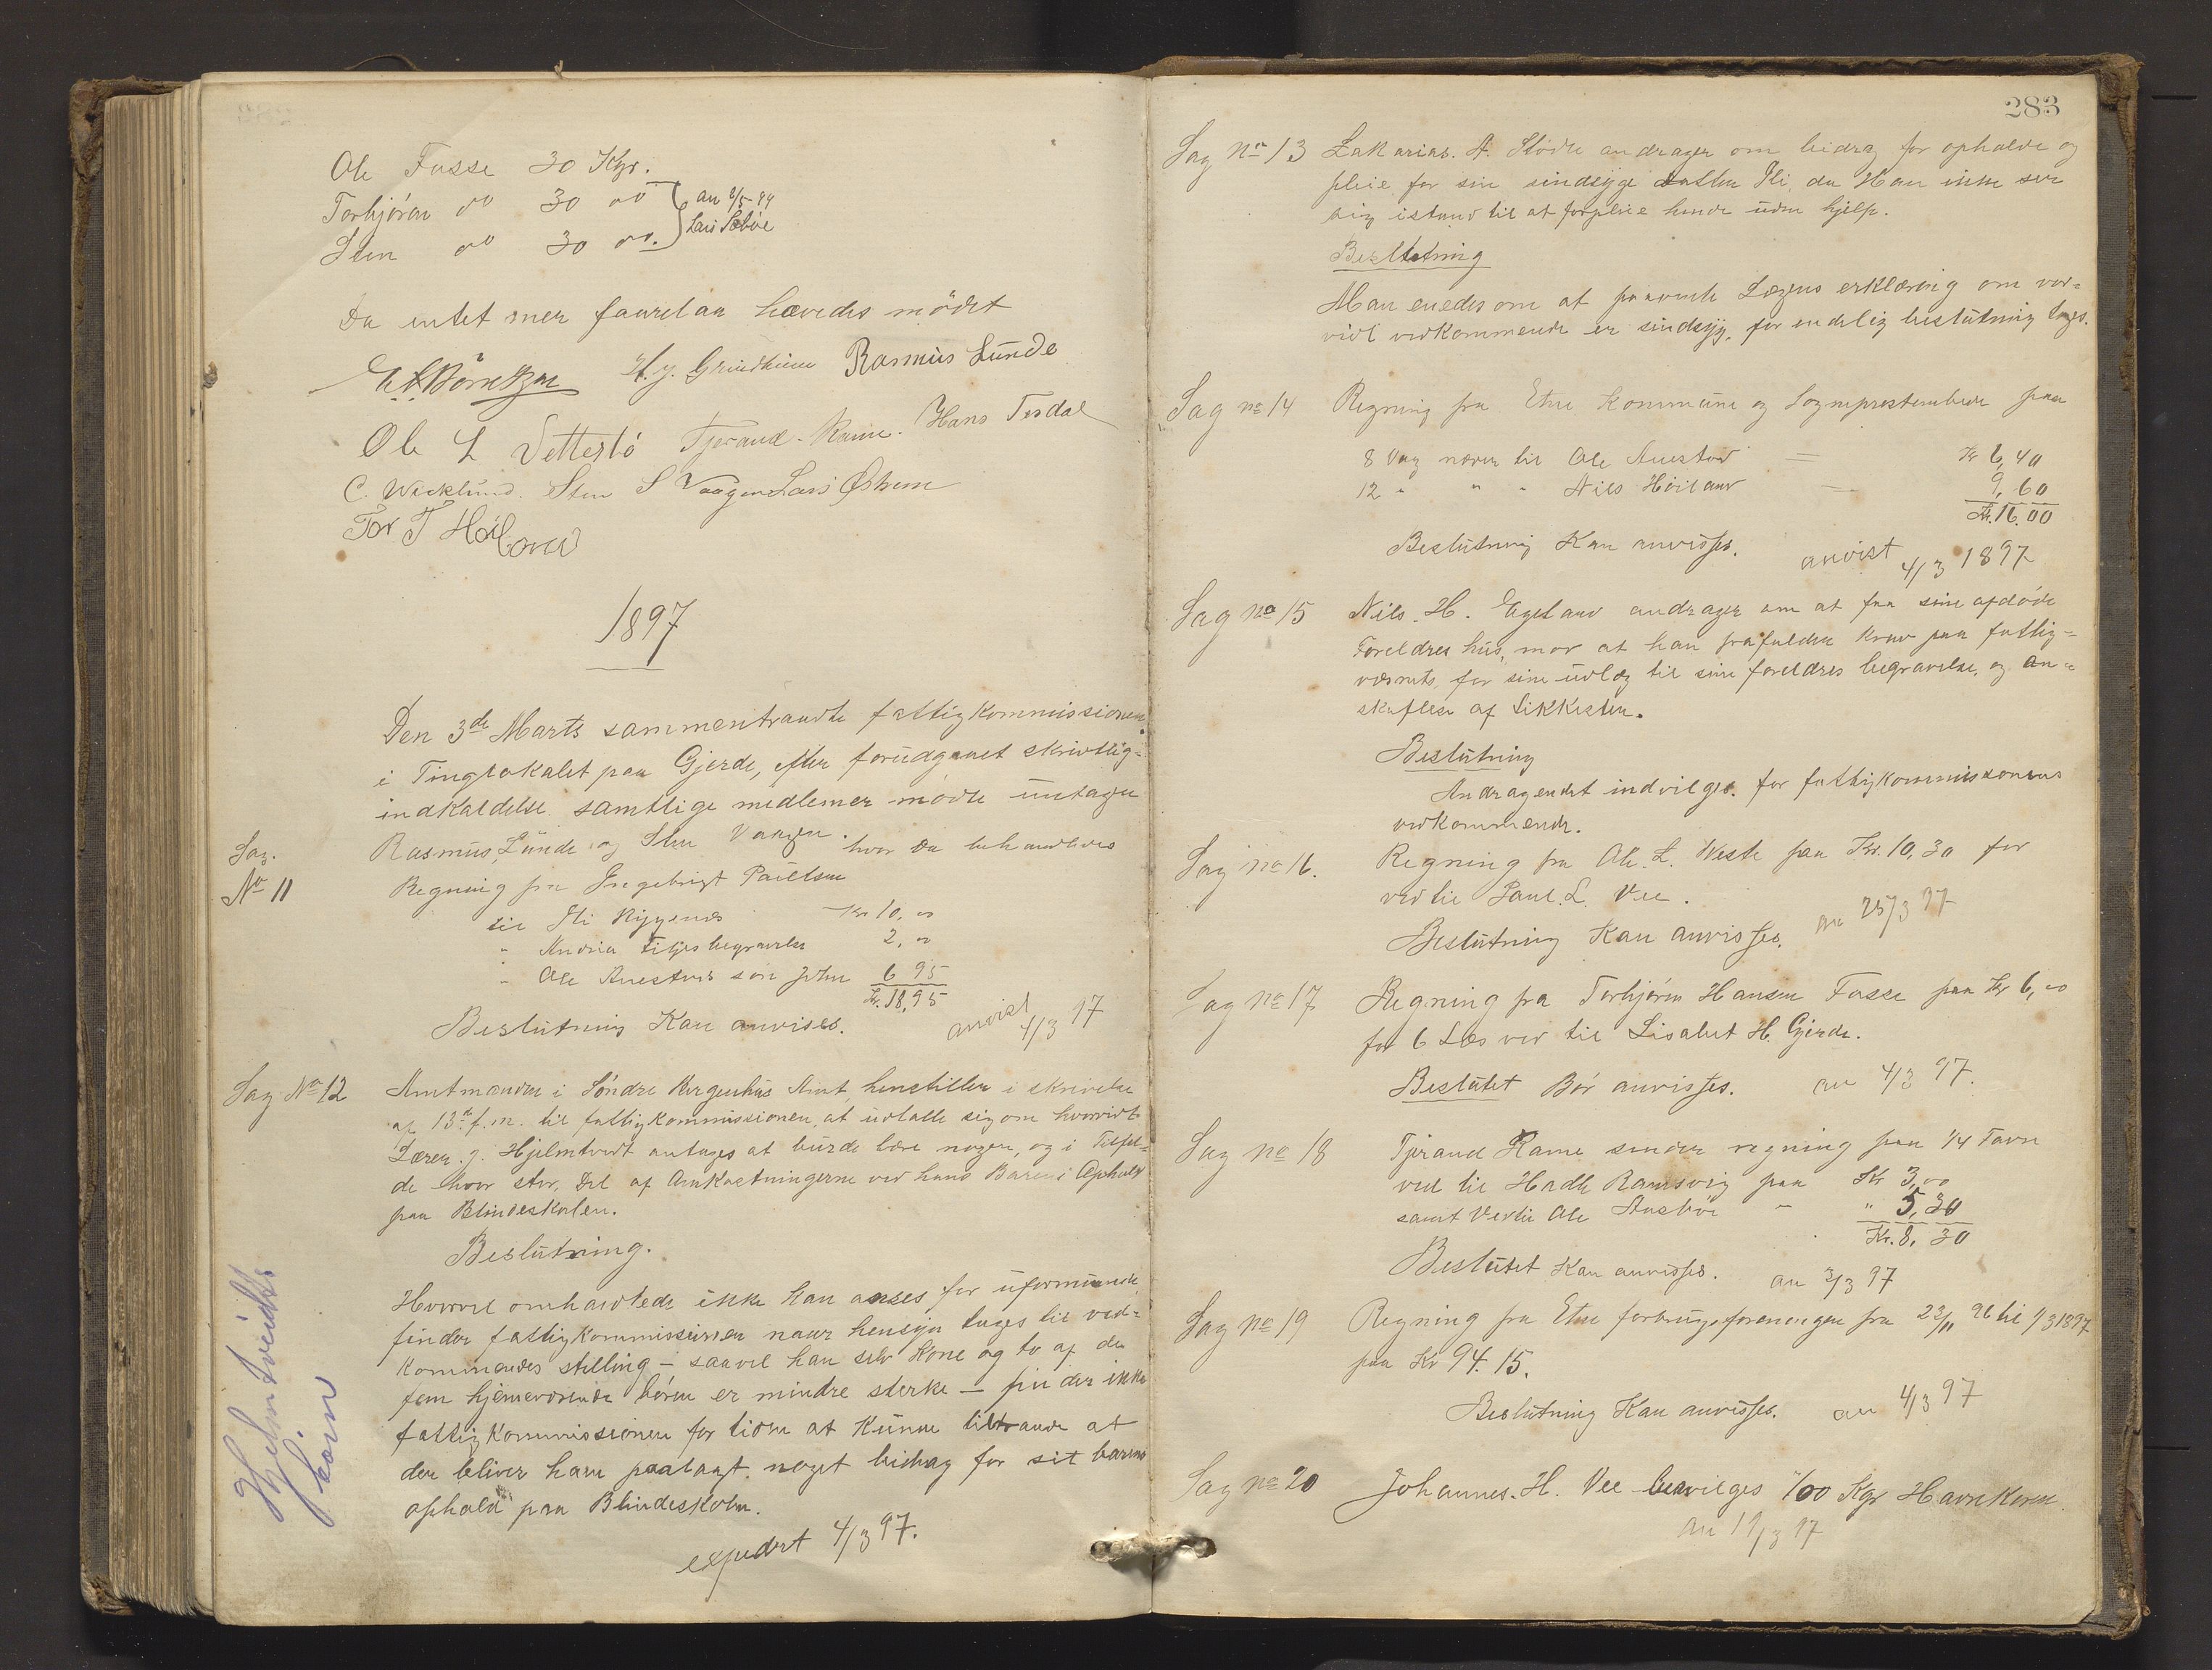 Ole Fosse 30 Kgr.
Torbjörn oo 30 oo
Sten oo 30 oo.
an 8/5-99
Lars Sæböe
Da intet mer faarelaa hævedes mödet
H. J. Grindheim Rasmus Lunde
Ole L Vetterlö Tjerand Rame. Hans Tesdal
C. Wacklund. Sten S Vaagen Lars Østrem
Tor T Høiland
1897
Den 3de Marts sammentraadte fattigkommissionen
i Tinglokalet paa Gjerde, efter forudganet skrivtlig-
indkaldelse samtlige medlemer mödte untagen
Rasmus Lunde og Sten Vaagen. hvor da behandledes
Sag.
No 11
Regning fra Ingebrigt Paulsen
til Ili Nyggenes Kr 10,00
" Andria Titjes begravelse 2,00
" Ole Auestads sön John 6 95
Kr. 18,95
Beslutning Kan anvises.
anvist 4/3 97
Sag No 12
Amtmanden i Söndre Bergenhus Amt, henstiller i skrivelse
af 13de f.m. til fattigkommissionen, at udtalle sig om hvorvidt
Lærer J. Hjelmtvedt antages at burde bære nogen, og i Tilfel-
de hvor stor, Del af Omkostningerne ved hans Barns Ophold
paa Blindeskolen.
Beslutning.
Hvorvel omhandlede ikke kan anses for uformuende,
finder fattigkommissionen naar hensyn tages til ved-
kommendes stilling - saavel han selv Kone og to af de
fem hjemeværende börn er mindre sterke - finder ikke
fattigkommissionen for tiden at kunne tiltraade at
der bliver ham paalagt noget bidrag for sit barns
ophold paa Blindeskolen.
expedert 4/3 97.
Hjelmtveidts
barn
283
Sag no 13 Zakarias. A. Stödle andrager om bidrag for ophold og
pleie for sin sindsyge datter Ili, da Han ikke ser
sig istand til at forpleie hende uden hjelp.
Beslutning
Man enedes om at paavente Lægens erklæring om vor-
vidt vedkommende er sindsyg, for endelig beslutning tages.
Sag no 14 Regning fra Etne Kommune og Sognprestembede paa
8 Vog næver til Ole Auestad = Kr 6,40
12 " " " Nils Höiland = 9,60
Kr. 16,00
Beslutning Kan anvisses.
anvist 4/3 1897
Sag no 15 Nils. H. Egeland andrager om at faa sine afdöde
Foreldres hus, mod at han frafalder krav paa fattig-
væsnets, for sine udlæg til sine foreldres begravelse, og an-
skaffese af Likkisten.
Beslutning
Andragendet indvilges. for fattigkommissionens
vedkommende.
Sag no 16. Regning fra Ole. L. Weste paa Kr. 10,30 for
ved til Paul. L. Vee.
Beslutning Kan anvisses.
an 25/3 97
Sag no 17 Regning fra Torbjörn Hansen Fosse paa Kr 6,00
for 6 Læs ved til Lisabet H. Gjerde.
Beslutet Bör anvisses. an 4/3 97.
Sag no 18 Tjerand Rame sender regning paa 1/4 Favn
ved til Hadle Ramsvig paa Kr 3,00
samt Ved til Ole Austböe " " 5,30
Kr. 8,30
Beslutet Kan anvisses. an 3/3 97
Sag no 19 Regning fra Etne forbrugsforeningen fra 23/11 96 til 1/3 1897
paa Kr 94.15.
Beslutning Kan anvisses. an 4/3 97
Sag no 20 Johannes. H. Vee bevilges 100 Kgr Havrekorn.
an 19/3 97